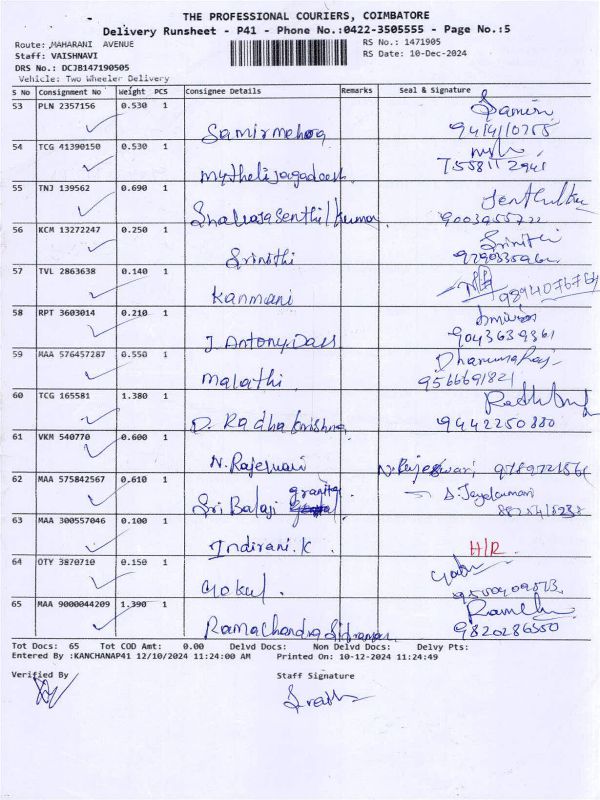 THE PROFESSIONAL COURIERS, COIMBATORE
Delivery Runsheet - P41 - Phone No.:0422-3505555 - Page No.:5
Route: MAHARANI AVENUE RS No.: 1471905
Staff: VAISHNAVI RS Date: 10-Dec-2024
DRS No.: DCJB147190505
Vehicle: Two Wheeler Delivery
S No Consignment No Weight PCS Consignee Details Remarks Seal & Signature
53 PLN 2357156 0.530 1
Samir mehra
54 TCG 41390150 0.530 1
7558112941
55 TNJ 139562 0.690 1
56 KCM 13272247 0.250 1 Srinithi
Srinithi
57 TVL 2863638 0.140 1
Kanmani
58 RPT 3603014 0.210 1
J. Antony Dass 9043639361
59 MAA 576457287 0.550 1 Dhanumaraj
Malathi 9566691821
60 TCG 165581 1.380 1
D. Radha krishna 9442250880
61 VKM 540770 0.600 1
N. Rajeswari N. Rajeswari
62 MAA 575842567 0.610 1
granite
Sri Balaji
63 MAA 300557046 0.100 1
Indirani. K H/R
64 OTY 3870710 0.150 1
Gokul.
65 MAA 9000044209 1.390 1
9820286550
Tot Docs: 65 Tot COD Amt: 0.00 Delvd Docs: Non Delvd Docs: Delvy Pts:
Entered By :KANCHANAP41 12/10/2024 11:24:00 AM Printed On: 10-12-2024 11:24:49
Verified By Staff Signature